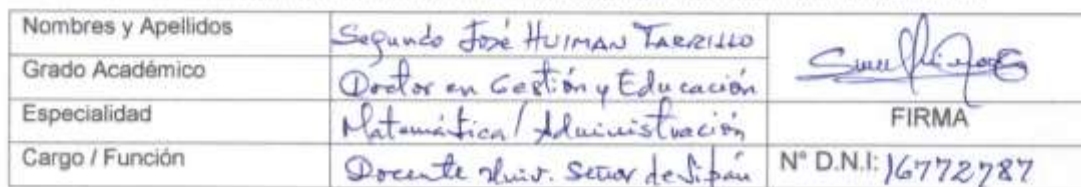 Nombres y Apellidos Segundo José HUIMAN TARRILLO
Grado Académico Doctor en Gestión y Educación
Especialidad Matemática / Administración FIRMA
Cargo / Función Docente Univ. Señor de Sipán N° D.N.I: 16772787